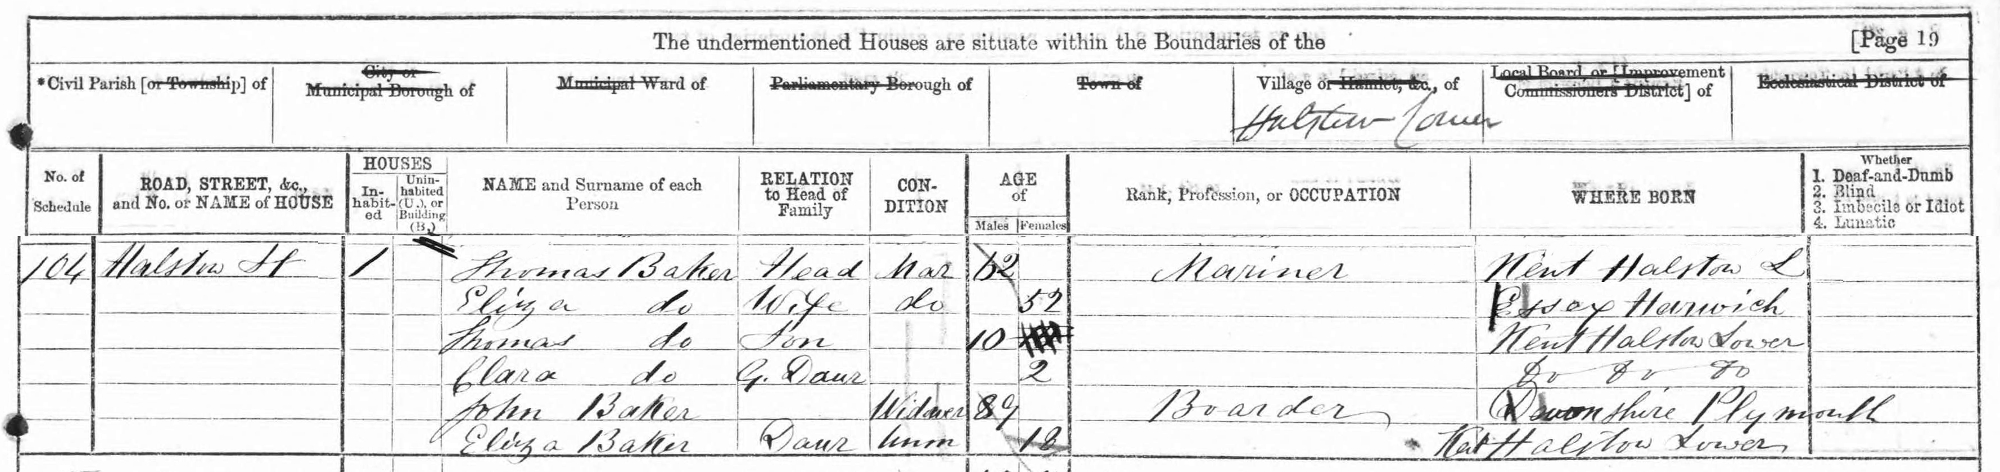 The undermentioned Houses are situate within the Boundaries of the [Page 19
*Civil Parish [or Township] of City or Municipal Borough of Municipal Ward of Parliamentary Borough of Town of Village or Hamlet, &c., of Local Board, or [Improvement Commissioners District] of Ecclesiastical District of
Halstow Lower
No. of Schedule ROAD, STREET, &c., and No. or NAME of HOUSE HOUSES In-habit-ed Unin-habited (U.), or Building (B.) NAME and Surname of each Person RELATION to Head of Family CON-DITION AGE of Males Females Rank, Profession, or OCCUPATION WHERE BORN Whether 1. Deaf-and-Dumb 2. Blind 3. Imbecile or Idiot 4. Lunatic
104 Halstow St 1 Thomas Baker Head Mar 62 Mariner Kent Halstow L
Eliza do Wife do 52 Essex Harwich
Thomas do Son 10 Kent Halstow Lower
Clara do G. Daur 2 Do Do Do
John Baker Widower 89 Boarder Devonshire Plymouth
Eliza Baker Daur Unm 18 Kent Halstow Lower